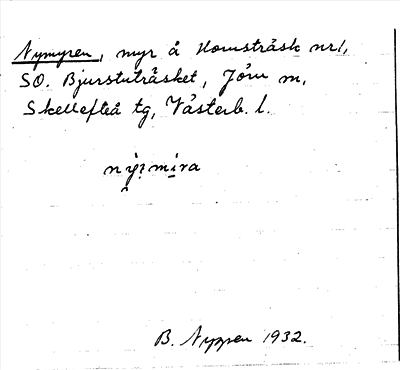 Nymyren, myr å Hornsträsk nr 1,
SO. Bjurstuträsket, Jörn m,
Skellefteå tg, Västerb. l.
B. Nyggen 1932.